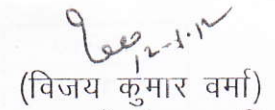 12-1-12
(विजय कुमार वर्मा)